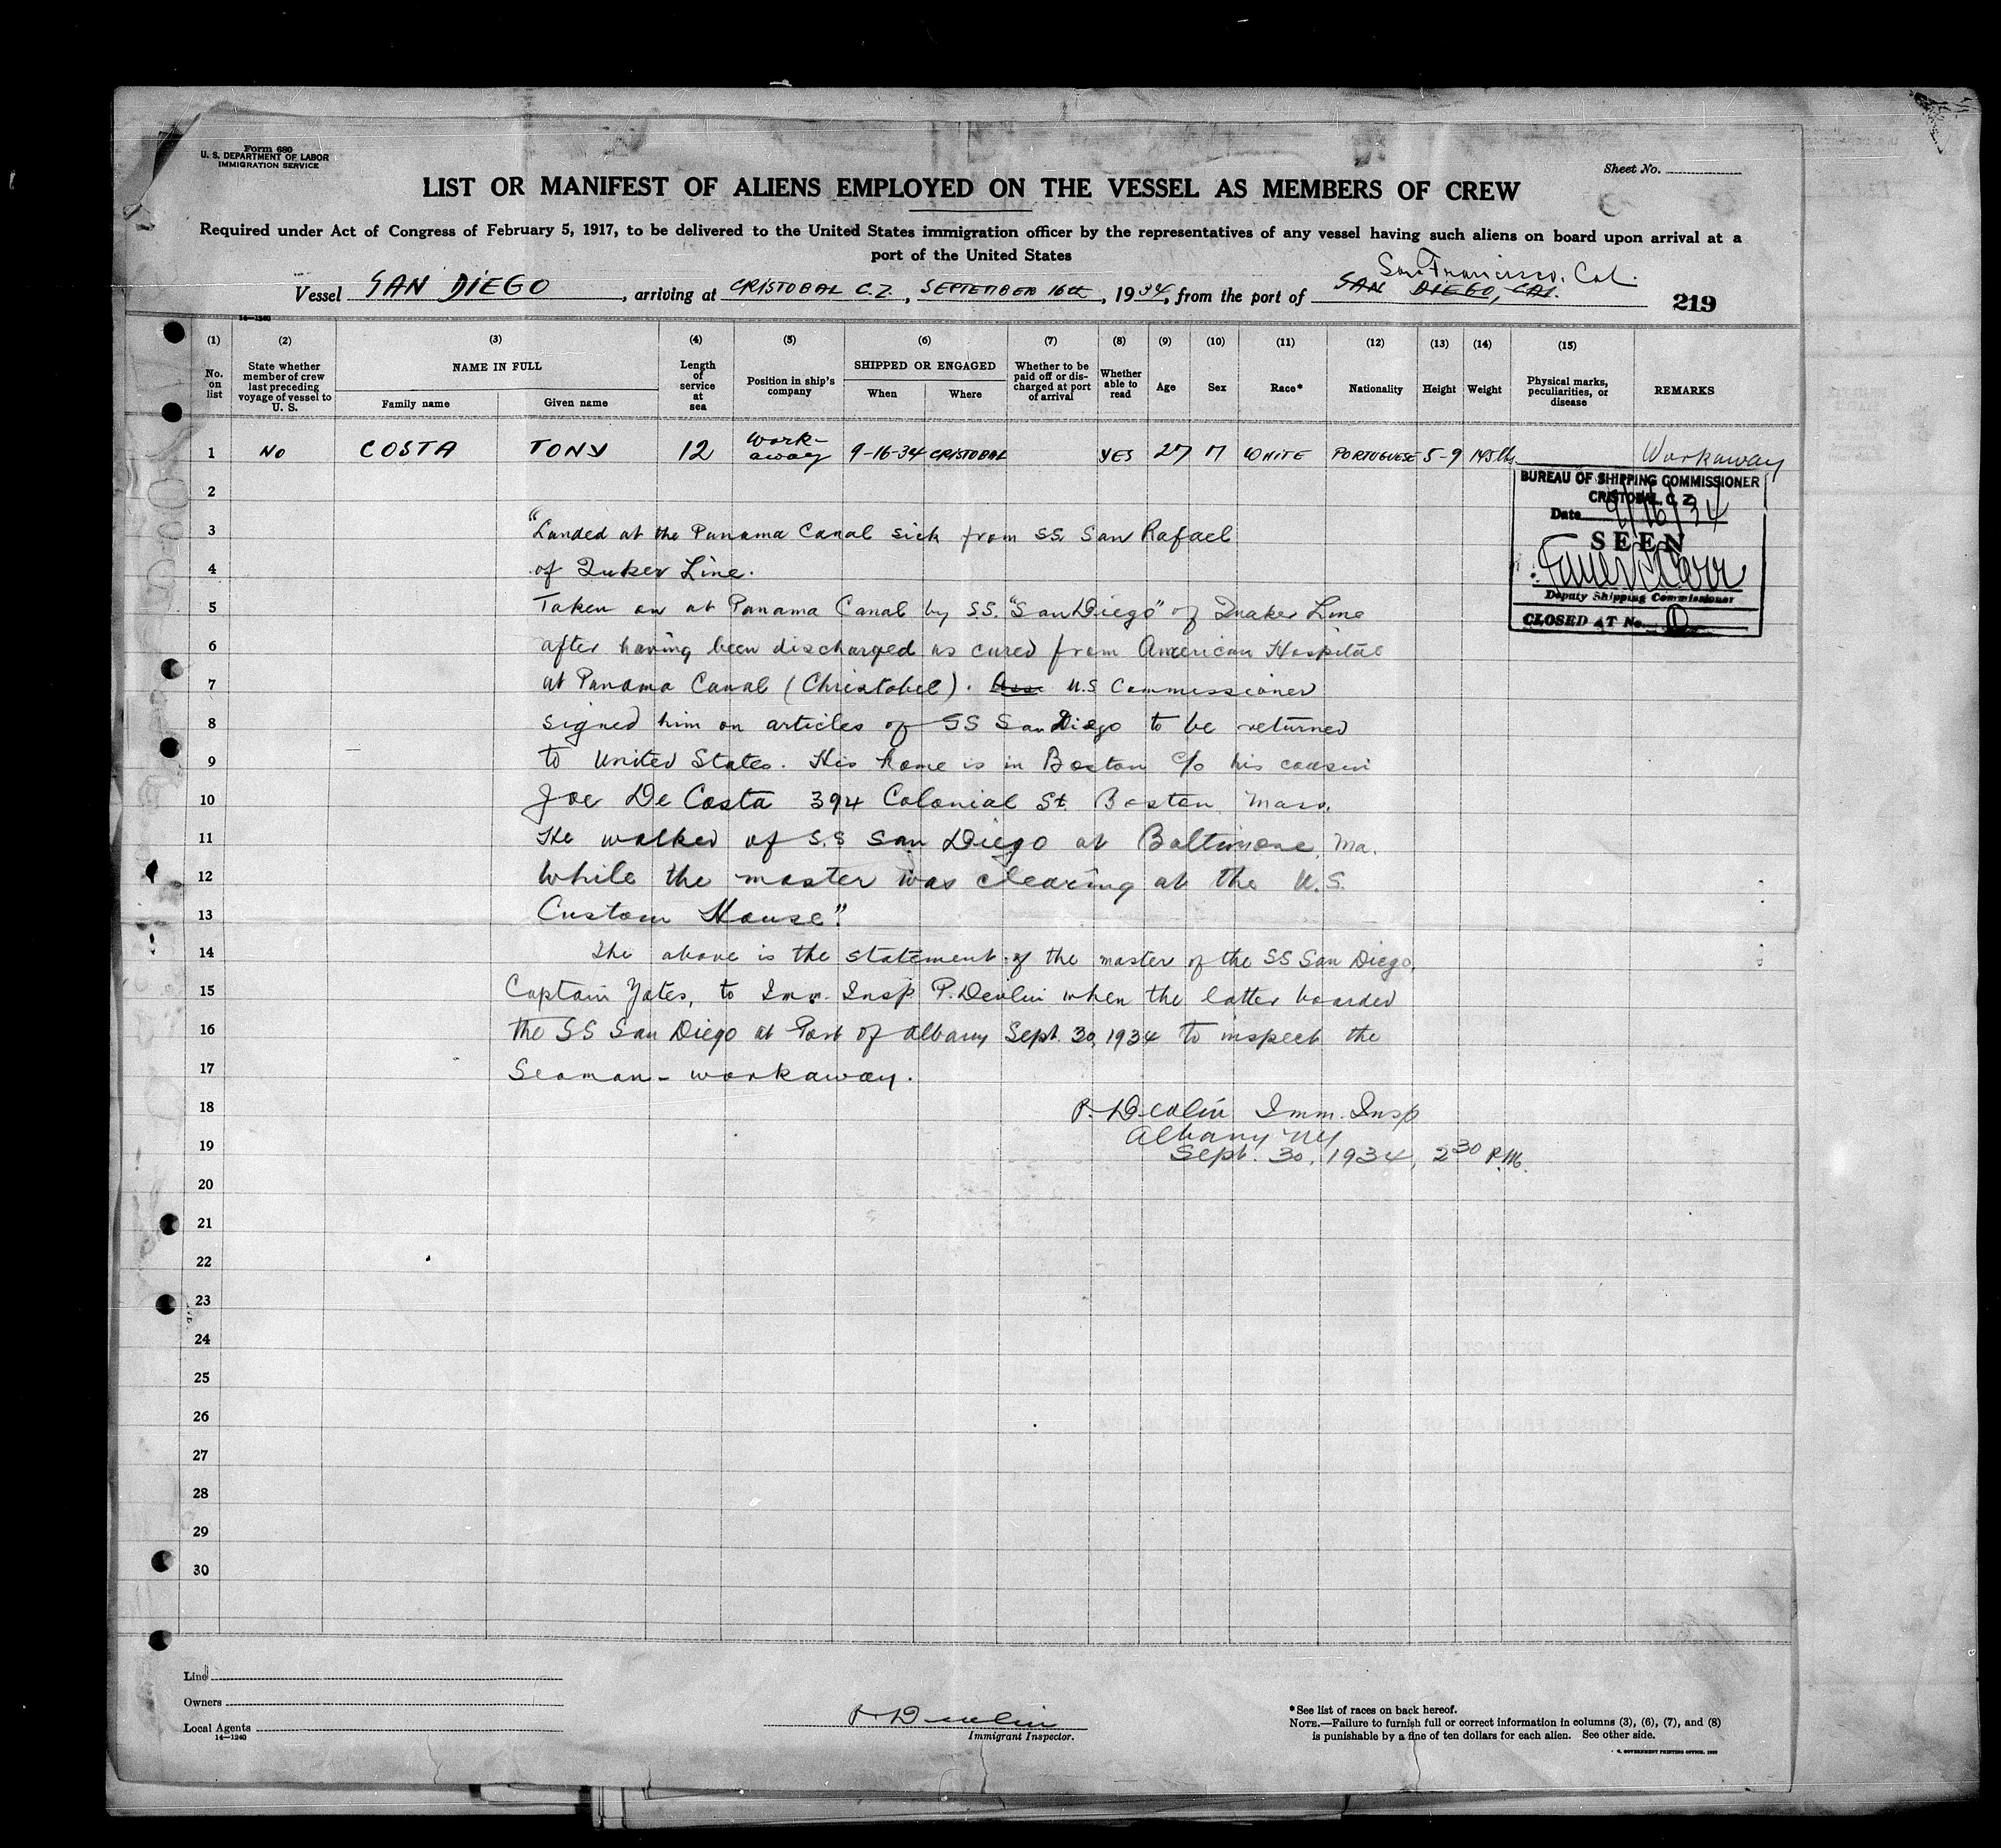 Form 680
U. S. DEPARTMENT OF LABOR
IMMIGRATION SERVICE
Sheet No.
LIST OR MANIFEST OF ALIENS EMPLOYED ON THE VESSEL AS MEMBERS OF CREW
Required under Act of Congress of February 5, 1917, to be delivered to the United States immigration officer by the representatives of any vessel having such aliens on board upon arrival at a
port of the United States
San Francisco, Cal.
Vessel SAN DIEGO, arriving at CRISTOBAL C.Z., SEPTEMBER 16th, 1934, from the port of SAN DIEGO, CAL. 219
14—1240
(1) (2) (3) (4) (5) (6) (7) (8) (9) (10) (11) (12) (13) (14) (15)
No. on list
State whether member of crew last preceding voyage of vessel to U. S.
NAME IN FULL
Family name
Given name
Length of service at sea
Position in ship's company
SHIPPED OR ENGAGED
When
Where
Whether to be paid off or discharged at port of arrival
Whether able to read
Age
Sex
Race*
Nationality
Height
Weight
Physical marks, peculiarities, or disease
REMARKS
1 NO COSTA TONY 12 Work-away 9-16-34 CRISTOBAL YES 27 M WHITE PORTUGUESE 5-9 145 lbs Workaway
BUREAU OF SHIPPING COMMISSIONER
CRISTOBAL, C. Z.
Date 9/16/34
SEEN
Deputy Shipping Commissioner
CLOSED AT No. 0
2
3 "Landed at the Panama Canal sick from SS San Rafael
4 of Quker Line.
5 Taken on at Panama Canal by S.S. "San Diego" of Quaker Line
6 after having been discharged as cured from American Hospital
7 at Panama Canal (Christobel). U.S Commissioner
8 signed him on articles of SS San Diego to be returned
9 to United States. His home is in Boston c/o his cousin
10 Joe De Costa 394 Colonial St. Boston Mass.
11 He walked of S.S San Diego at Baltimore, Ma.
12 While the master was clearing at the U.S.
13 Custom House".
14 The above is the statement of the master of the SS San Diego,
15 Captain Yates, to Imm. Insp P. Devlin when the latter boarded
16 the SS San Diego at Port of Albany Sept. 30, 1934 to inspect the
17 Seaman - workaway.
18 P. Devlin Imm. Insp
Albany NY
19 Sept. 30, 1934, 2 30 P.M.
20
21
22
23
24
25
26
27
28
29
30
Line
Owners
Local Agents
14—1240
P Devlin
Immigrant Inspector.
*See list of races on back hereof.
NOTE.—Failure to furnish full or correct information in columns (3), (6), (7), and (8)
is punishable by a fine of ten dollars for each alien. See other side.
GOVERNMENT PRINTING OFFICE